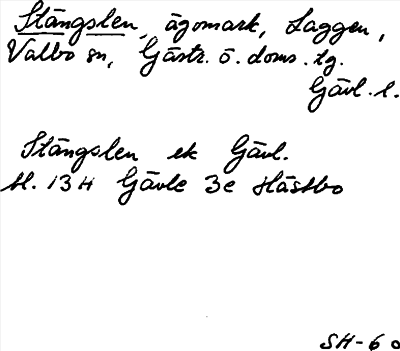 Stängslen, ägomark, Laggen,
Valbo sn, Gästr. ö. doms. tg.
Gävl. l.
Stängslen ek Gävl.
bl. 13H Gävle 3e Hästbo
SH-60